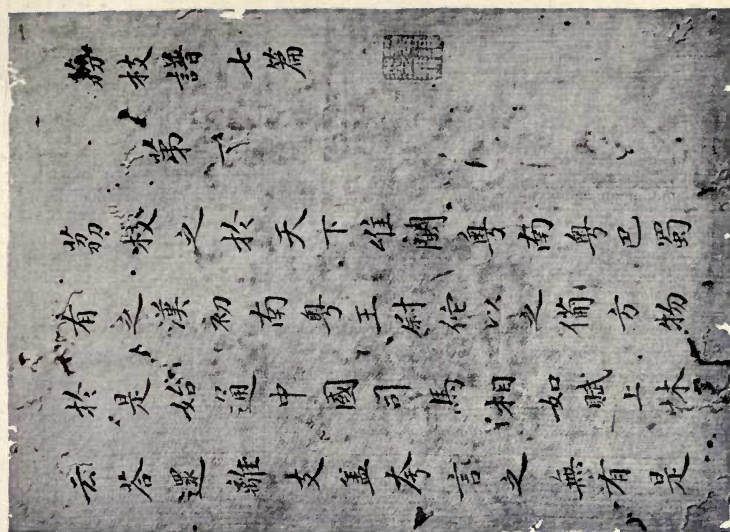 荔枝譜七篇
第一
荔枝之於天下唯閩粵南粵巴蜀
有之漢初南粵王尉佗以之備方物
於是始通中國司馬相如賦上林
云荅遝離支盖夸言之無有是